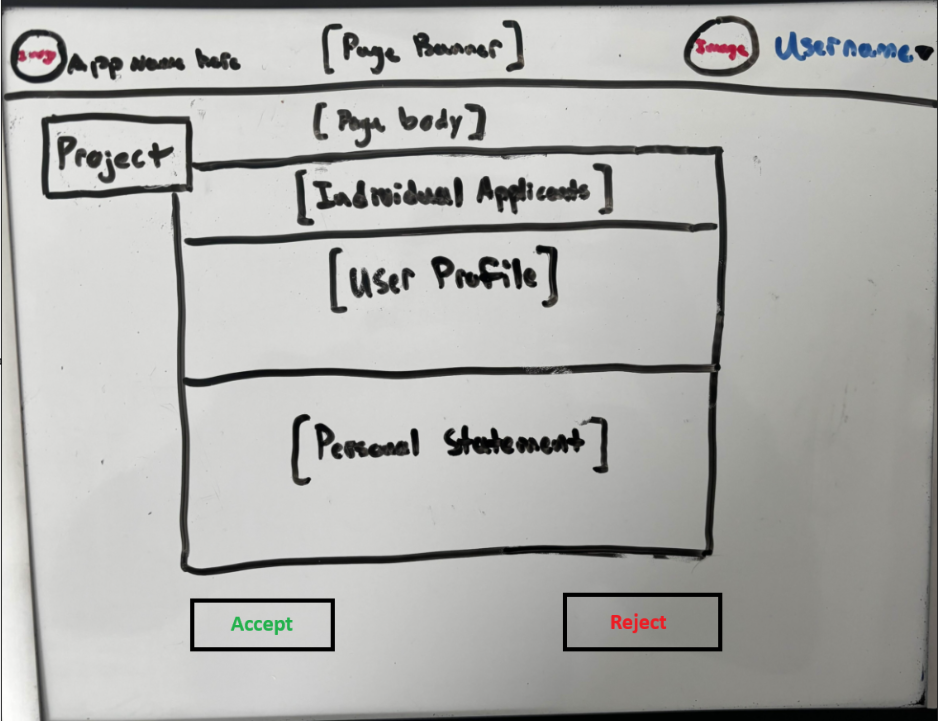 Image App Name here [Page Banner] Image Username
[Page body]
Project
[Individual Applicants]
[User Profile]
[Personal Statement]
Accept Reject